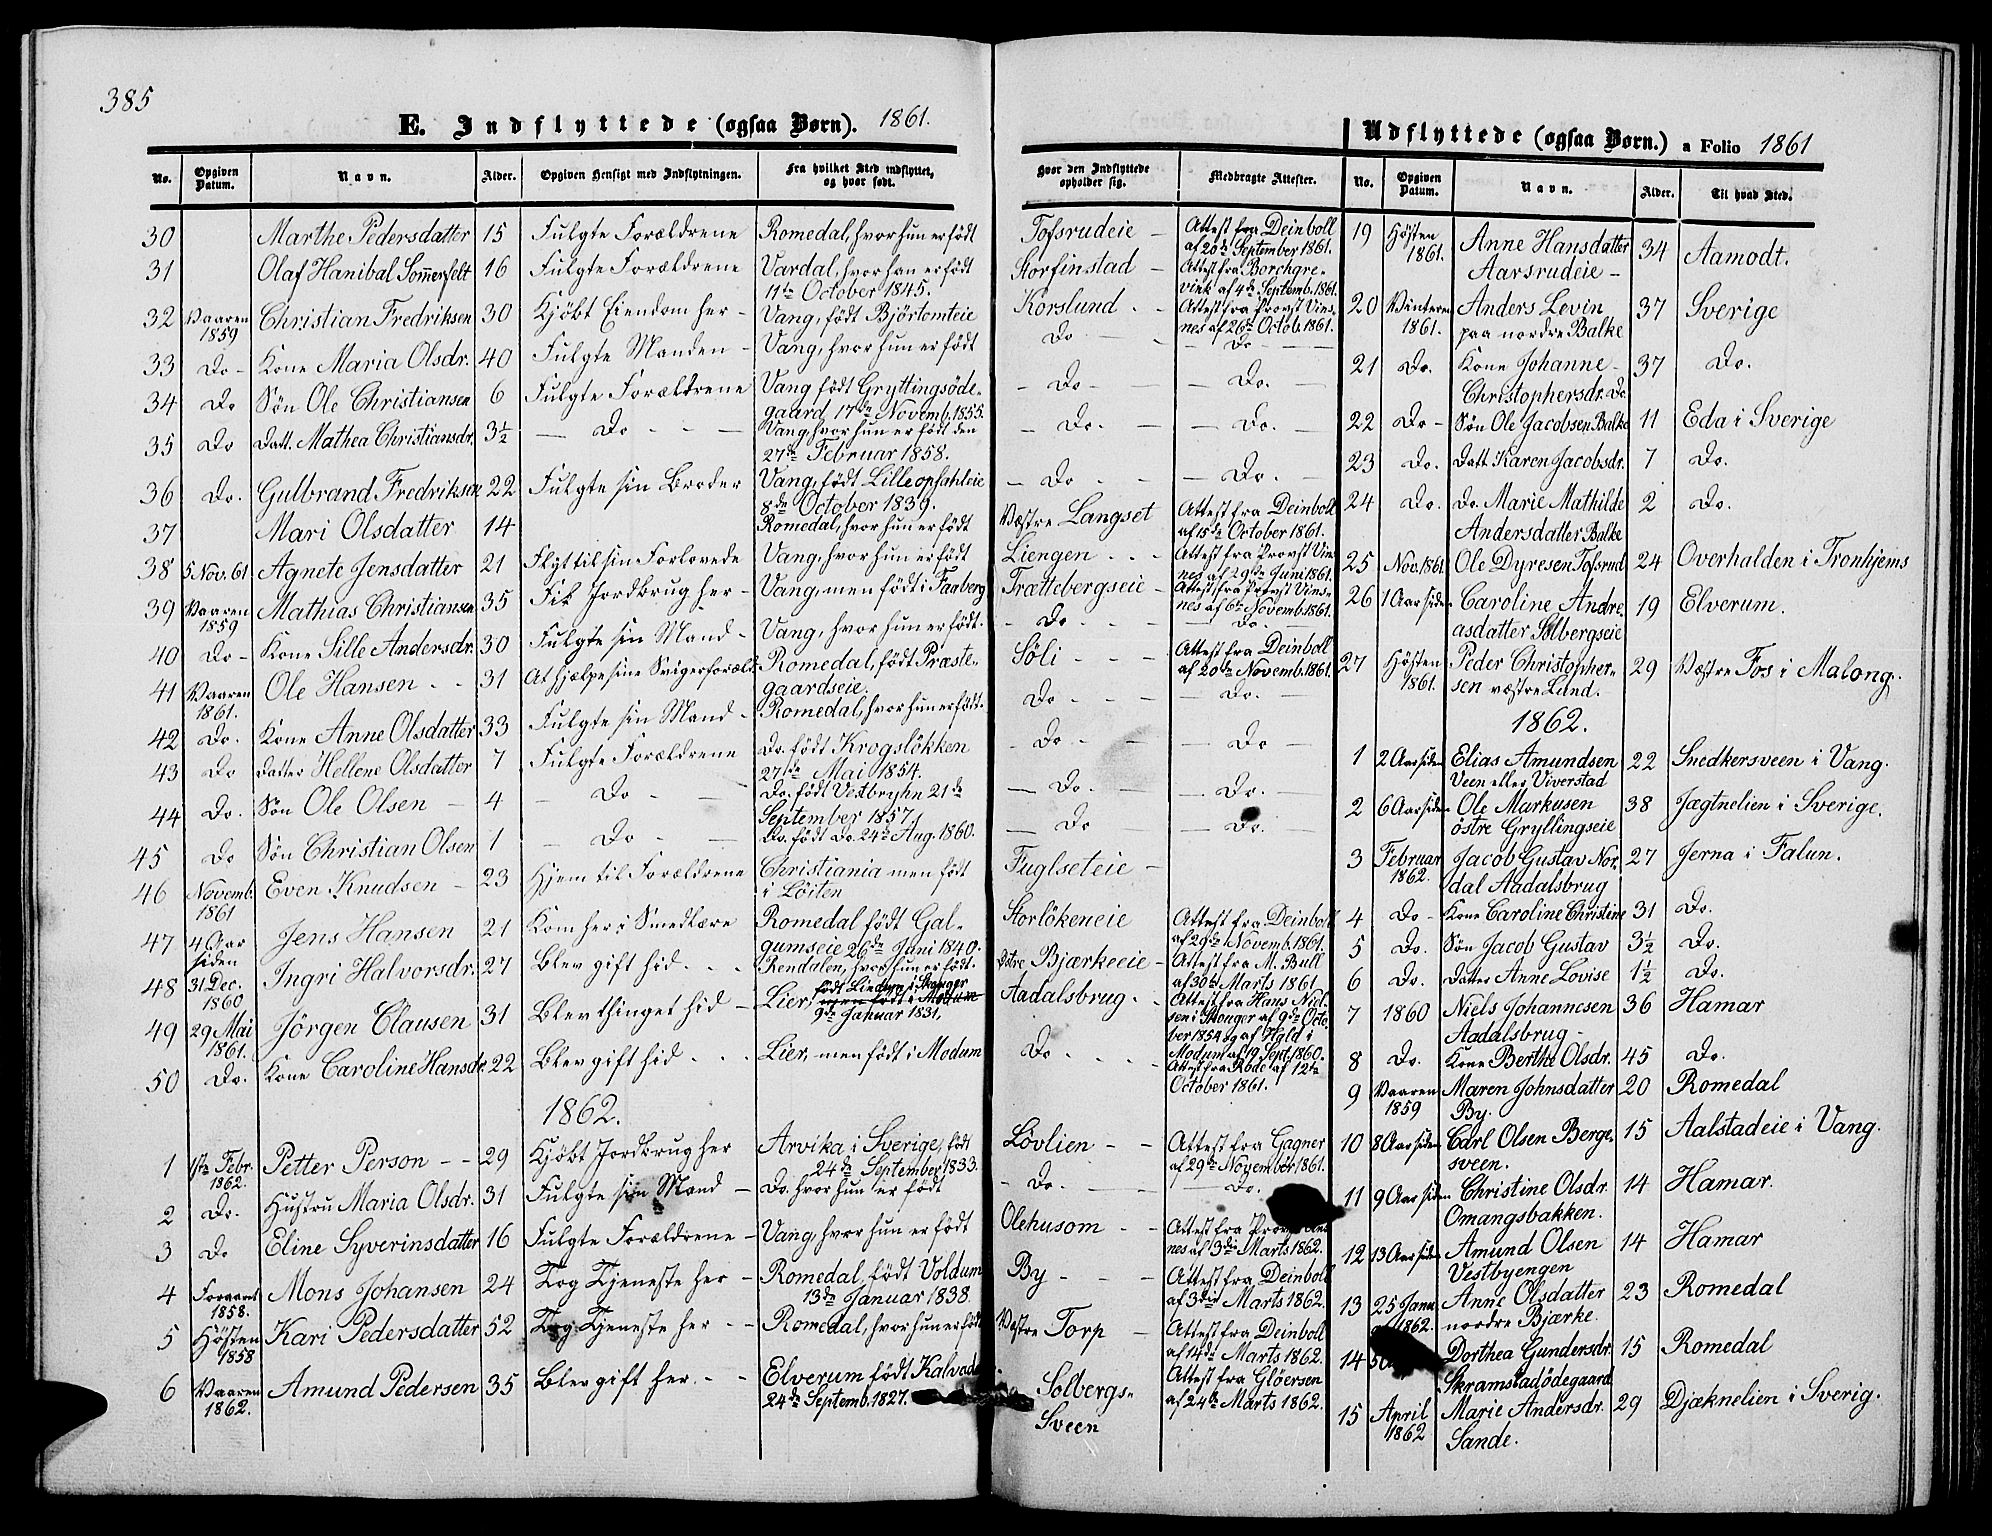 385
E. Indflyttede (ogsaa Børn). 1861.
No. Opgiven Datum. Navn. Alder. Opgiven Hensigt med Indflytningen. Fra hvilket Sted indflyttet, og hvor født. Hvor den Indflyttede opholder sig. Medbragte Attester.
30 Marthe Pedersdatter 15 Fulgte Forældrene Romedal, hvor hun er født Tofsrudeie - Attest fra Deinboll af 20de September 1861.
31 Olaf Hanibal Somerfelt 16 Fulgte Forældrene Vardal, hvor han er født 11te October 1845. Storfinstad - Attest fra Borchgrevink af 4de Septemb. 1861.
32 Vaaren 1859 Christian Fredriksen 30 Kjöbt Eiendom her - Vang, født Björtomteie Korslund - - Attest fra Provst Vinsnes af 26de Octob. 1861.
33 Do - Kone Maria Olsdr. 40 Fulgte Manden - Vang, hvor hun er født Do - - Do -
34 Do Søn Ole Christiansen 6 Fulgte Forældrene Vang født Gryttingsödegaard 17de Novemb. 1855. - Do - - Do. -
35 Do Datt. Mathea Christiansdr. 3½ - Do - - Vang, hvor hun er født den 27de Februar 1858. - Do. - - Do. -
36 Do. Gulbrand Fredriksen 22 Fulgte sin Broder Vang, født Lilleopsahleie 8de October 1839. - Do - - Do. -
37 Mari Olsdatter 14 Romedal, hvor hun er født Væstre Langset Attest fra Deinboll af 15de October 1861.
38 5 Nov. 61 Agnete Jensdatter 21 Flyt til sin Forlovede Vang, hvor hun er født Liengen - - - Attest fra Provst Vinsnes af 29de Juni 1861.
39 Vaaren 1859 Mathias Christiansen 35 Fik Jordbrug her - Vang, men født i Faaberg Trættebergseie - Attest fra Provst Vinsnes af 6te Novemb. 1861.
40 Do - Kone Sille Andersdr. 30 Fulgte sin Mand - Vang, hvor hun er født. - Do - - - Do. -
41 Vaaren 1861. Ole Hansen - - 31 At hjælpe sine Svigerforæld. Romedal, født Præstegaardseie. Søli - - - Attest fra Deinboll af 20de Novemb. 1861.
42 Do. Kone Anne Olsdatter 33 Fulgte sin Mand - Romedal, hvor hun er født. Do - - - - Do. -
43 Do Datter Hellene Olsdatter 7 Fulgte Forældrene Do. født Krogslökken 27de Mai 1854. - Do - - - Do -
44 Do. Søn Ole Olsen - 4 - Do - - Do. født Vestbryhn 21de September 1857. - Do. - - Do. -
45 Do Søn Christian Olsen 1 - Do - - Do. født Do. 24de Aug. 1860. - Do - - Do. -
46 Novemb. 1861 Even Knudsen - 23 Hjem til Forældrene Christiania men født i Löiten Fuglseteie -
47 4 Aar siden Jens Hansen 21 Kom her i Smedlære Romedal født Galgumseie 26de Juni 1840. Storlökeneie Attest fra Deinboll af 29de Novemb. 1861.
48 31 Dec. 1860 Ingri Halvorsdr. 27 Blev gift hid - - - Rendalen, hvor hun er født. Bjærkeeie - Attest fra M. Bull af 30te Marts 1861
49 29 Mai 1861. Jörgen Clausen 31 Blev thinget hid - Lier, født Lierbyen i Skouger men født i Modum 9de Januar 1831, Aadalsbrug - - Attest fra Hans Nielsen i Skouger af 9de October 1854 og af Hgld i Modum af 19 Sept. 1860.
50 Do. Kone Caroline Hansdr. 22 Blev gift hid - - - Lier, men født i Modum Do - - - - Attest fra Rode af 12te October 1861.
1862.
1 1ste Febr. 1862. Petter Person - - 29 Kjöbt Jordbrug her Arvika i Sverige, født 24de September 1833. Lövlien - - Attest fra Gagner af 29de November 1861.
2 Do. Hustru Maria Olsdr. 31 Fulgte sin Mand - Do. hvor hun er født - Do. - - Do.
3 Do Eline Syverinsdatter 16 Fulgte Forældrene - Vang, hvor hun er født Olehusom - - Attest fra af 3die Marts 1862.
4 Foraaret 1858. Mons Johansen 24 Tog Tjeneste her - Romedal, født Voldum 13de Januar 1838 By - - - Attest fra Deinboll af 3die Marts 1862.
5 Hösten 1858 Kari Pedersdatter 52 Tog Tjeneste her - - Romedal, hvor hun er født Væstre Torp - Attest fra Deinboll af 14de Marts 1862.
6 Vaaren 1862. Amund Pedersen 35 Blev gift her. - - Elverum født 24de Septemb. 1827. Solbergs-Sveen Attest fra Glöersen af 24de Marts 1862.
Udflyttede (ogsaa Børn.) a Folio 1861
No. Opgiven Datum. Navn. Alder. Til hvad Sted.
19 Hösten 1861. Anne Hansdatter Aarsrudeie - 34 Aamodt.
20 Vinteren 1861. Anders Levin paa nordre Balke 37 Sverige
21 Do. Kone Johanne Christophersdr. Do. 37 Do.
22 Do - Søn Ole Jacobsen Balke 11 Eda i Sverige
23 Do. Datt Karen Jacobsdr. 7 Do.
24 Do. Do. Marie Mathilde Andersdatter Balke 2 Do.
25 Nov. 1861 Ole Dyresen Tofsrud 24 Overhalden i Tronhjems
26 1 Aar siden Caroline Andreasdatter Solbergseie 19 Elverum.
27 Hösten 1861. Peder Christophersen væstre Lund. 29 Væstre Fos i Malong.
1862.
1 2 Aar siden Elias Amundsen Veen eller Viverstad 22 Snedkersveen i Vang.
2 6 Aar siden Ole Markusen östre Gryllingseie 38 Jægtnelien i Sverige.
3 Februar 1862. Jacob Gustav Nordal Aadalsbrug 27 Jerna i Falun.
4 Do - Kone Caroline Christine 31 Do.
5 Do. Søn Jacob Gustav 3½ Do.
6 Do. Datter Anne Lovise 1½ Do.
7 1860 Niels Johannesen Aadalsbrug - 36 Hamar
8 Do. Kone Berthe Olsdr. 45 Do.
9 Vaaren 1859 Maren Johnsdatter By. 20 Romedal
10 8 Aar siden Carl Olsen Bergesveen. 15 Aalstadeie i Vang.
11 9 Aar siden Christine Olsdr. Omangsbakken. 14 Hamar.
12 13 Aar siden Amund Olsen Vestbyengen 14 Hamar
13 25 Janu. 1862. Anne Olsdatter nordre Bjærke. 23 Romedal
14 Dorthea Gundersdr. Skramstadödegaard 15 Romedal
15 April 1862 Marie Andersdr. Sande. 29 Djæknelien i Sverig.